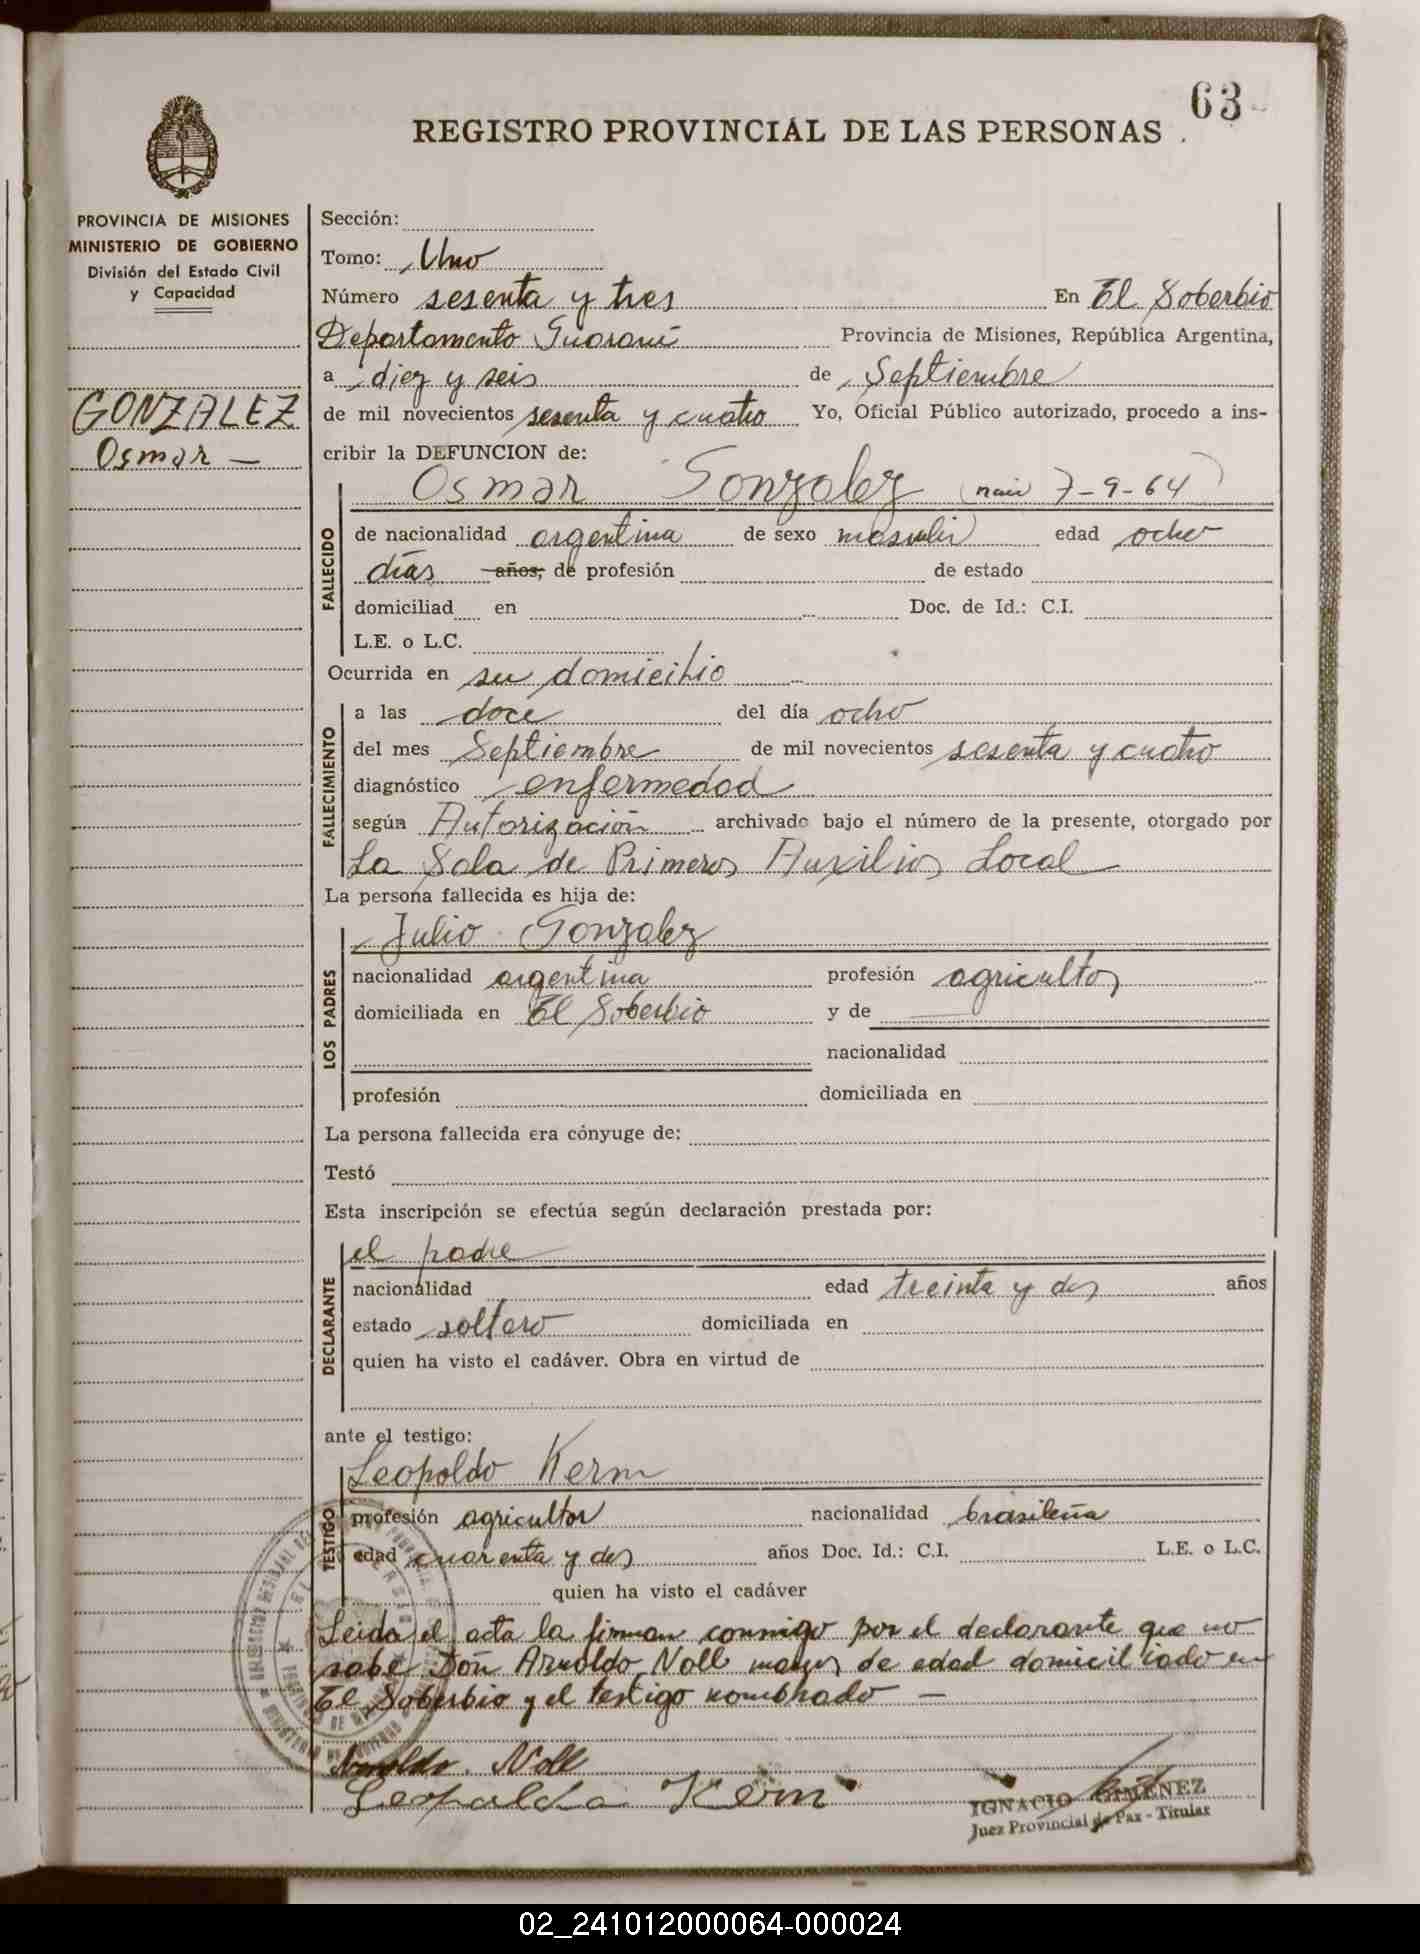 63
REGISTRO PROVINCIAL DE LAS PERSONAS
PROVINCIA DE MISIONES
MINISTERIO DE GOBIERNO
División del Estado Civil
y Capacidad
GONZALEZ
Osmar —
Sección:
Tomo: Uno
Número sesenta y tres En El Soberbio
Departamento Guaraní Provincia de Misiones, República Argentina,
a diez y seis de Septiembre
de mil novecientos sesenta y cuatro Yo, Oficial Público autorizado, procedo a ins-
cribir la DEFUNCION de:
Osmar Gonzalez 7-9-64)
FALLECIDO
de nacionalidad argentina de sexo edad ocho
días años, de profesión de estado
domiciliad en Doc. de Id.: C.I.
L.E. o L.C.
Ocurrida en su domicilio
FALLECIMIENTO
a las doce del día ocho
del mes Septiembre de mil novecientos sesenta y cuatro
diagnóstico enfermedad
según Autorización archivado bajo el número de la presente, otorgado por
La Sala de Primeros Auxilios Local
La persona fallecida es hija de:
LOS PADRES
Julio Gonzalez
nacionalidad argentina profesión agricultor
domiciliada en El Soberbio y de
nacionalidad
profesión domiciliada en
La persona fallecida era cónyuge de:
Testó
Esta inscripción se efectúa según declaración prestada por:
DECLARANTE
el padre
nacionalidad edad treinta y dos años
estado soltero domiciliada en
quien ha visto el cadáver. Obra en virtud de
ante el testigo:
TESTIGO
Leopoldo Kern
profesión agricultor nacionalidad brasileña
edad cuarenta y dos años Doc. Id.: C.I. L.E. o L.C.
quien ha visto el cadáver
Leida el acta la firman conmigo por el declarante que no
sabe Don Arnoldo Noll mayor de edad domiciliado en
El Soberbio y el testigo nombrado —
Arnoldo Noll
Leopoldo Kern
IGNACIO GIMENEZ
Juez Provincial de Paz - Titular
02_241012000064-000024